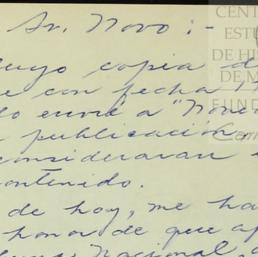 Sr. Novo:-
copia d
con fecha 1
envié a "Nove
publicación,
consideraran
contenido.
de hoy, me ha
honor de que ap
Nacional,
CENT
ESTU
DE HI
DE M
FUND
Car